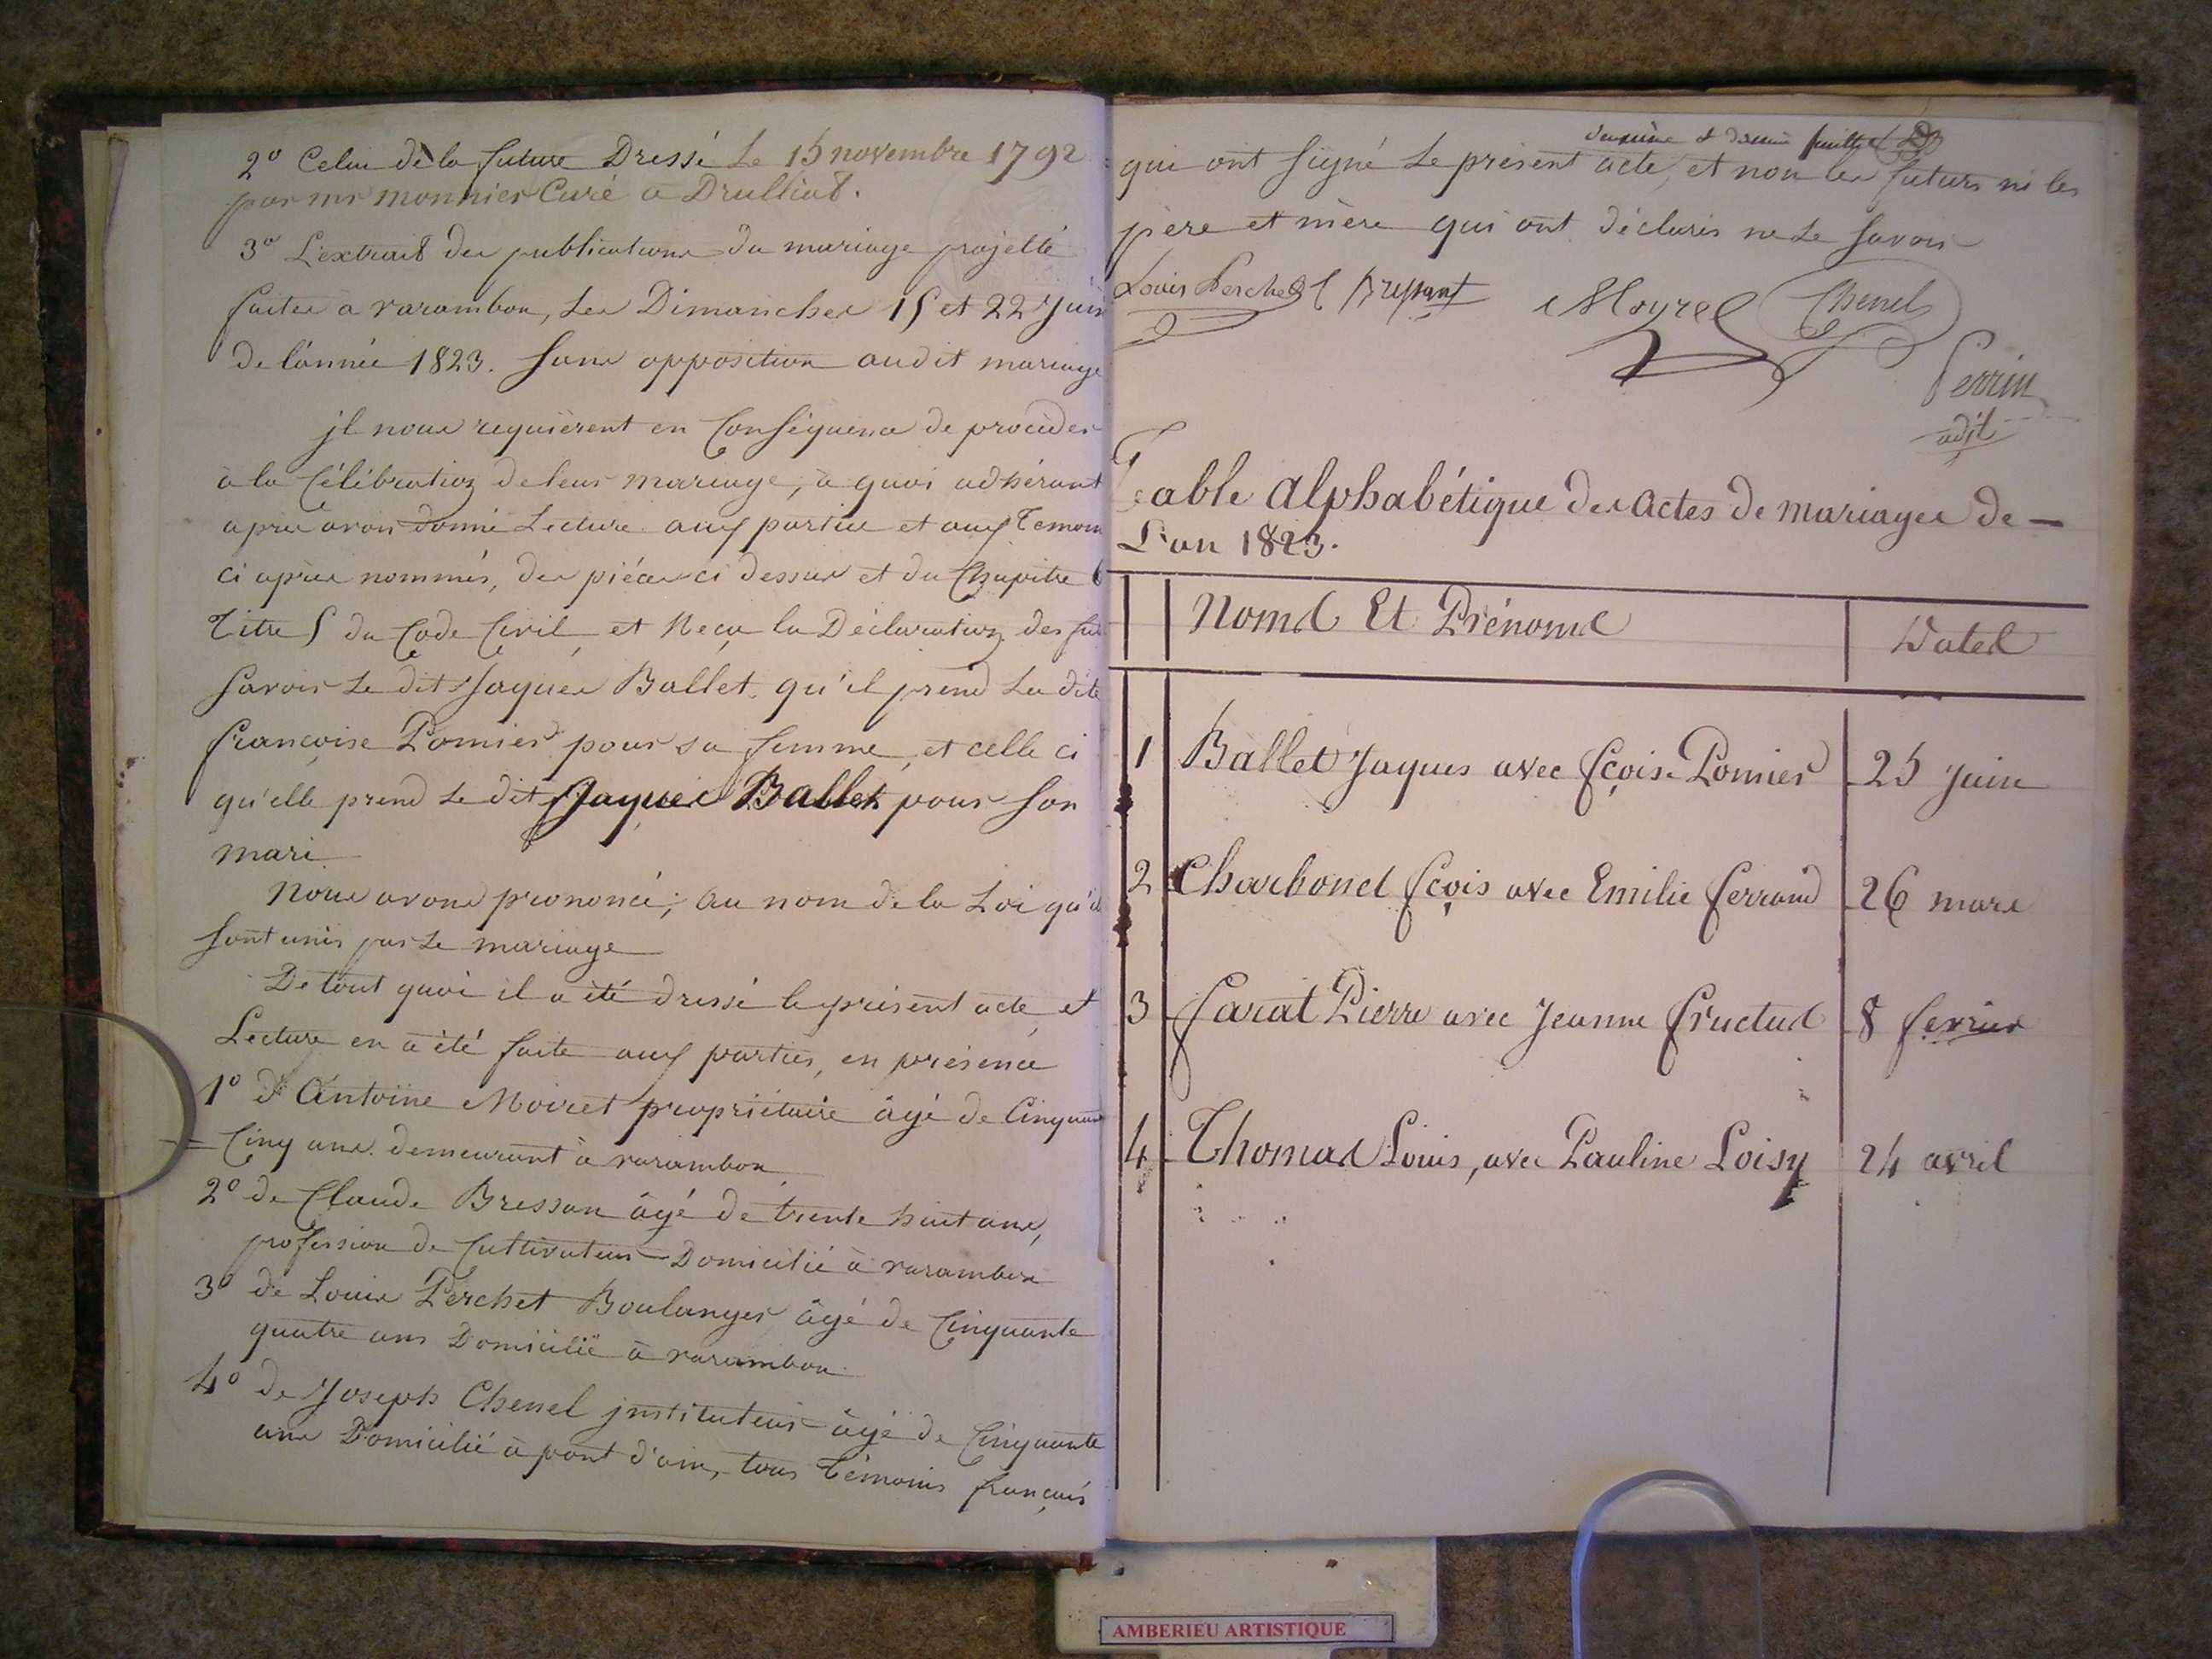 2º Celui de la future Dressé Le 15 novembre 1792
par mr monnier Curé à Druilliat.
3º L'extrait des publications du mariage projetté
faites a varambon, Les Dimanches 15 et 22 Juin
de l'année 1823. Sans opposition audit mariage
jl nous requièrent en Conséquence de procéder
à la Célébration de leur mariage, à quoi adhérant
après avoir donné Lecture aux parties et aux Temoins
ci après nommés, des pièces ci dessus et du Chapitre 6
Titre 5 du Code Civil, et Reçu la Déclaration des fut
Savoir Le dit Jaques Ballet qu'il prend La dite
françoise Pomier pour sa femme, et celle ci
qu'elle prend Le dit Jaques Ballet pour Son
mari
Nous avons prononcé, au nom de la Loi qu'ils
Sont unis par Le mariage
De tout quoi il a été dressé le présent acte, et
Lecture en a été faite aux parties, en présence
1º d'Antoine Moiret propriétaire âgé de Cinquante
= Cinq ans demeurant à varambon
2º de Claude Bressan âgé de trente huit ans,
profession de Cultivateur Domicilié à varambon
3º de Louis Perchet Boulanger âgé de Cinquante
quatre ans Domicilié à varambon
4º de Joseph Chenel jnstituteur âgé de Cinquante
ans Domicilié à pont d'ain, tous Témoins français
feuillet
qui ont Signé Le présent acte, et non les futurs ni les
père et mère qui ont déclarés ne Le Savoir
Louis Perchet Bressant Moyret Chenel
Perrin
adjt
Table Alphabétique des Actes de mariages de —
L'an 1823.
Noms Et Prénoms Dates
1 Ballet Jaques avec fçoise Pomier 25 Juin
2 Charbonet fçois avec Emilie ferrand 26 mars
3 farat Pierre avec Jeanne fructus 8 fevrier
4 Thomas Louis, avec Pauline Loisy 24 avril
AMBERIEU ARTISTIQUE